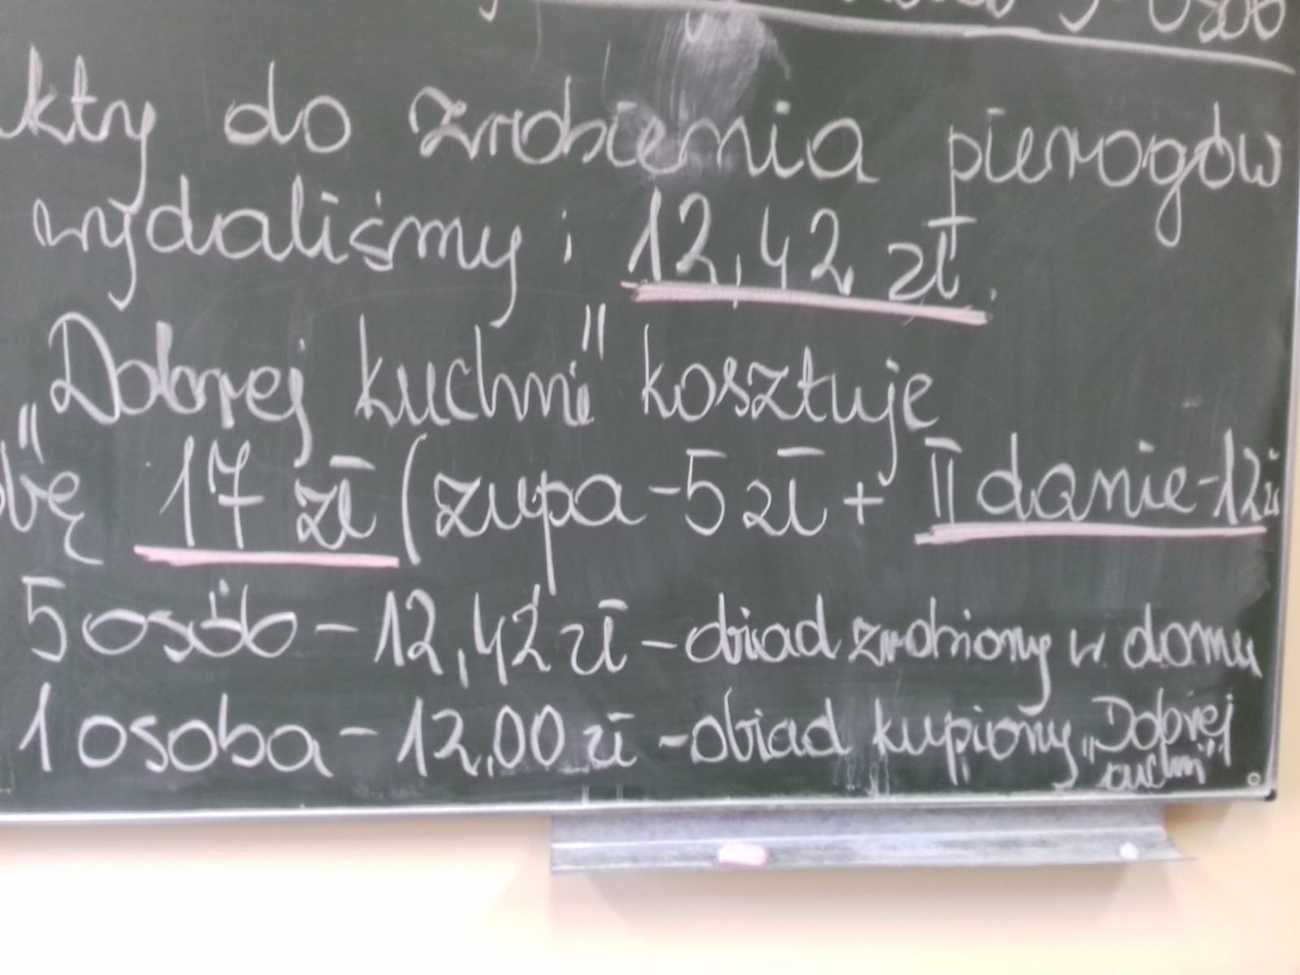 5 osób
kty do zrobienia pierogów
wydaliśmy: 12,42 zł.
„Dobrej kuchni" kosztuje
bę 17 zł (zupa - 5 zł + II danie - 12 zł
5 osób - 12,42 zł - obiad zrobiony w domu
1 osoba - 12,00 zł - obiad kupiony „Dobrej
kuchni"